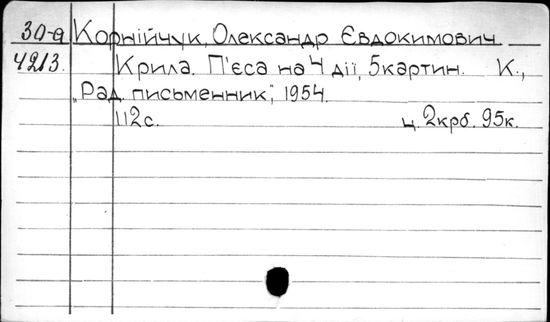 30-а Корнійчук, Олександр Євдокимович.
4213. Крила. П'єса на 4 дії, 5 картин. К.,
„Рад. письменник", 1954.
112 с. ц. 2 крб. 95 к.